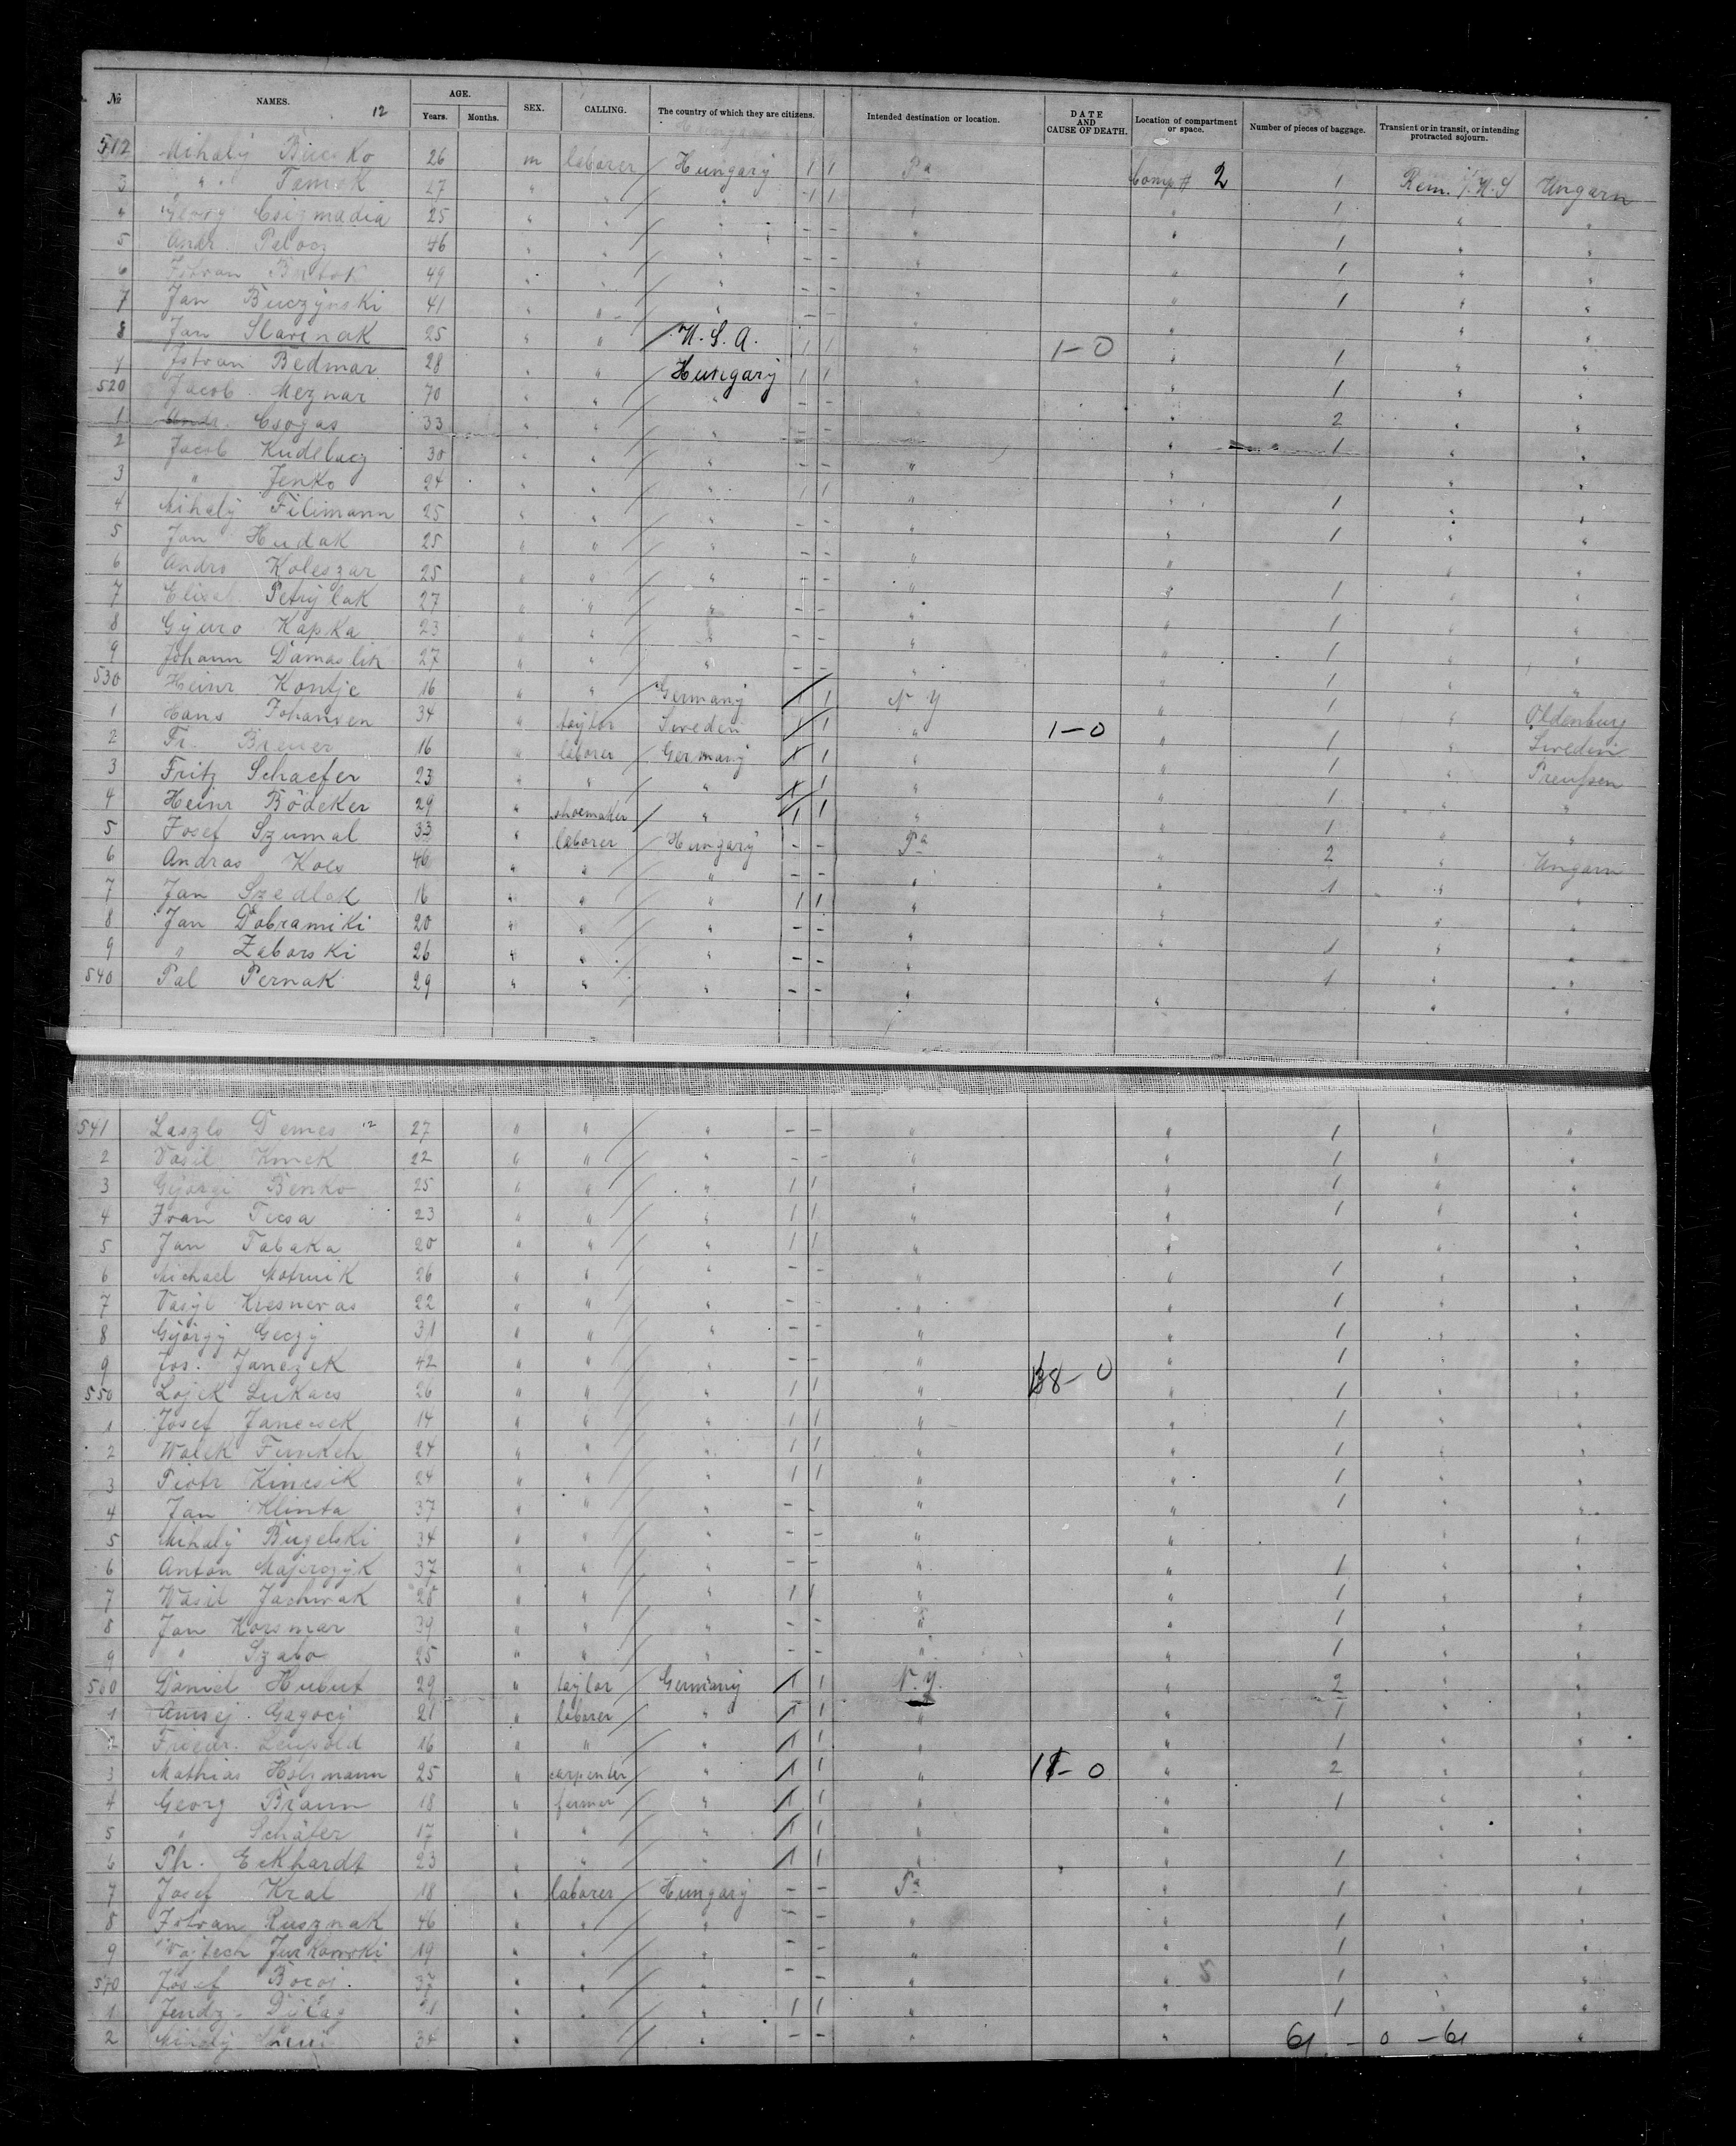 № NAMES. 12 AGE. Years. Months. SEX. CALLING. The country of which they are citizens. Intended destination or location. DATE AND CAUSE OF DEATH. Location of compartment or space. Number of pieces of baggage. Transient or in transit, or intending protracted sojourn.
512 Mihalÿ 26 m laborer Hungarÿ 1 1 Pa Comp # 2 1 Rem. i. U. S Ungarn
3 " Tamek 27 " " " 1 1 " " 1 " "
4 Georg Csizmadia 25 " " " - - " " 1 " "
5 Andr. Palocz 46 " " " - - " " 1 " "
6 Istvan 49 " " " - - " " 1 " "
7 Jan Buczÿnski 41 " " " - - " " " "
8 Jan Slavinak 25 " " U. S. A. 1 1 " 1-0 " 1 " "
9 Istvan Bednar 28 " " Hungarÿ 1 1 " " 1 " "
520 Jacob Meznar 70 " " " - - " 2 " "
1 Andr. Csogas 33 " " " - - " 1 " "
2 Jacob Kudelacz 30 " " " - - " " " "
3 " Jenko 24 " " " 1 1 " " 1 " "
4 Mihalÿ Filimann 25 " " " - - " " 1 " "
5 Jan Hudak 25 " " " - - " " " "
6 Andro Koleszar 25 " " " - - " " 1 " "
7 Petrÿlak 27 " " " - - " " 1 " "
8 Gÿuro Kapka 23 " " " - - " " 1 " "
9 Johann Damaslik 27 " " " - - " " 1 " "
530 Heinr Kontje 16 " " Germanÿ 1 1 N Y " 1 " Oldenburg
1 Hans Johansen 34 " taÿlor Sweden 1 1 " 1-0 " 1 " Sweden
2 Fr. Breuer 16 " laborer Germanÿ 1 1 " " 1 " Preußen
3 Fritz Schaefer 23 " " " 1 1 " " 1 " "
4 Heinr Bödeker 29 " shoemaker " 1 1 " " 1 " "
5 Josef Szumal 33 " laborer Hungarÿ - - Pa " 2 " Ungarn
6 Andras Kols 46 " " " - - " " 1 " "
7 Jan Szedlak 16 " " " 1 1 " " " "
8 Jan Dobramiki 20 " " " - - " " 1 " "
9 " Zaborski 26 " " " - - " 1 " "
540 Pal Pernak 29 " " " - - " " " "
541 Laszlo Demes 12 27 " " " - - " " 1 " "
2 Vasil Kmek 22 " " " - - " 1 " "
3 Gÿorgi Benko 25 " " " 1 1 " " 1 " "
4 Ivan Tecsa 23 " " " 1 1 " " 1 " "
5 Jan Tabaka 20 " " " 1 1 " " " "
6 Michael Motruik 26 " " " - - " 1 " "
7 Vasÿl Kresnevas 22 " " " - - " " 1 " "
8 Gÿorgÿ Geczÿ 31 " " " - - " " 1 " "
9 Jos. Janczek 42 " " " - - " " 1 " "
550 Lojek Lukacs 26 " " " 1 1 " 38-0 " 1 " "
1 Josef Janecsek 14 " " " 1 1 " " 1 " "
2 Walek 24 " " " 1 1 " " 1 " "
3 Piotr Kincsik 24 " " " 1 1 " " 1 " "
4 Jan Klinta 37 " " " - - " " 1 " "
5 Mihalÿ Bugelski 34 " " " - - " " " "
6 Anton Majerczÿk 37 " " " - - " " 1 " "
7 Wasil Jachwak 28 " " " 1 1 " " 1 " "
8 Jan Korsmar 39 " " " - - " " 1 " "
9 " Szabo 25 " " " - - " " 1 " "
560 Daniel Hubert 29 " taÿlor Germanÿ 1 1 N. Y. " 2 " "
1 Gagocÿ 21 " laborer " 1 1 " " 1 " "
2 Friedr. Leupold 16 " " " 1 1 " " 1 " "
3 Mathias Holzmann 25 " carpenter " 1 1 " 11-0 " 2 " "
4 Georg Braun 18 " farmer " 1 1 " " 1 " "
5 " Schäfer 17 " " " 1 1 " " " "
6 Ph. Eckhardt 23 " " " 1 1 " " 1 " "
7 Josef Kral 18 " laborer Hungarÿ - - Pa " 1 " "
8 Istvan Rusznak 46 " " " - - " " 1 " "
9 Vojtech Jurkowski 19 " " " - - " " 1 " "
570 Josef Bocoi. 37 " " " - - " " 5 1 " "
1 Jendz. 21 " " " 1 1 " " 1 " "
2 34 " " " - - " " 61 - 0 - 61 "